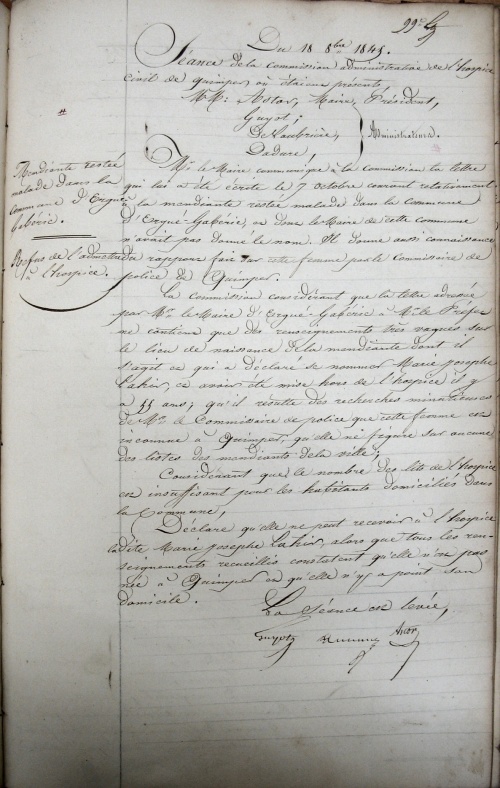 Du 18 8bre 1845.
Séance de la commission administrative de l'hospice
civil de Quimper, où étaient présents
MM: Astor, Maire, Président,
Guyot,
Administrateurs.
Mendiante restée
malade dans la
commune d'Ergué
Gabéric.
Refus de l'admettre
à l'hospice.
Mr. le Maire communique à la commission la lettre
qui lui a été écrite le 7 octobre courant relativement
à la mendiante restée malade dans la Commune
d'Ergué-Gabéric, et dont le Maire de cette commune
n'avait pas donné le nom. Il donne aussi connaissance
du rapport fait sur cette femme par le Commissaire de
police de Quimper.
La commission considérant que la lettre adressée
par Mr. le Maire d'Ergué-Gabéric à Mr. le Préfet
ne contient que des renseignements très vagues sur
le lieu de naissance de la mendiante dont il
s'agit et qui a déclaré se nommer Marie Josephe
et avoir été mise hors de l'hospice il y
a ans; qu'il résulte des recherches minutieuses
de Mr. le Commissaire de police que cette femme est
inconnue à Quimper, qu'elle ne figure sur aucune
des listes des mendiants de la ville;
Considérant que le nombre des lits de l'hospice
est insuffisant pour les habitants domiciliés dans
la Commune,
Déclare qu'elle ne peut recevoir à l'hospice
ladite Marie Josephe alors que tous les ren-
seignements recueillis constatent qu'elle n'est pas
née à Quimper et qu'elle n'y a point son
domicile.
La séance est levée,
Guyot Astor